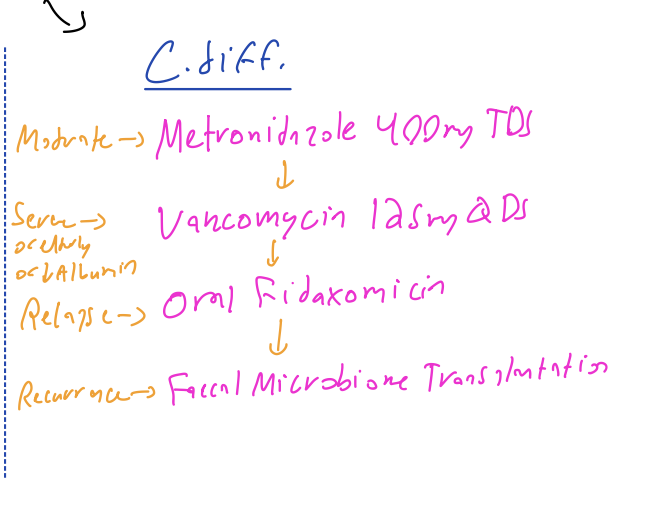 C.diff.
Moderate → Metronidazole 400mg TDS
Severe → Vancomycin 125mg QDS
or elderly
or ↓ Albumin
Relapse → Oral Fidaxomicin
Recurrence → Faecal Microbiome Transplantation